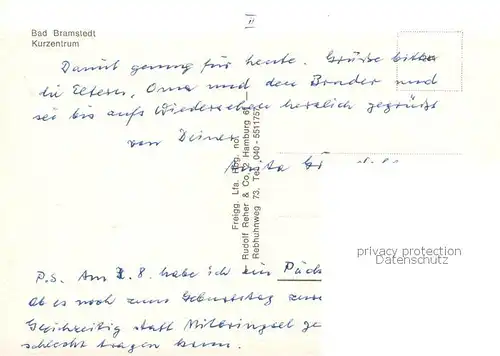 II
Bad Bramstedt
Kurzentrum
Damit genug für heute. Grüße bitte
die Eltern, Oma und den Bruder und
sei bis aufs Wiedersehen herzlich gegrüßt
von Deiner
Freigg. Lfa. Hbg. no.
Rudolf Reher & Co., 2 Hamburg 6
Rebhuhnweg 73, Tel. 040 - 5511757
P.S. Am 1.8. habe ich ein Päch
ob es noch zum Geburtstag
Gleichzeitig statt Mitbringsel ge
schlecht tragen kann.
privacy protection
Datenschutz